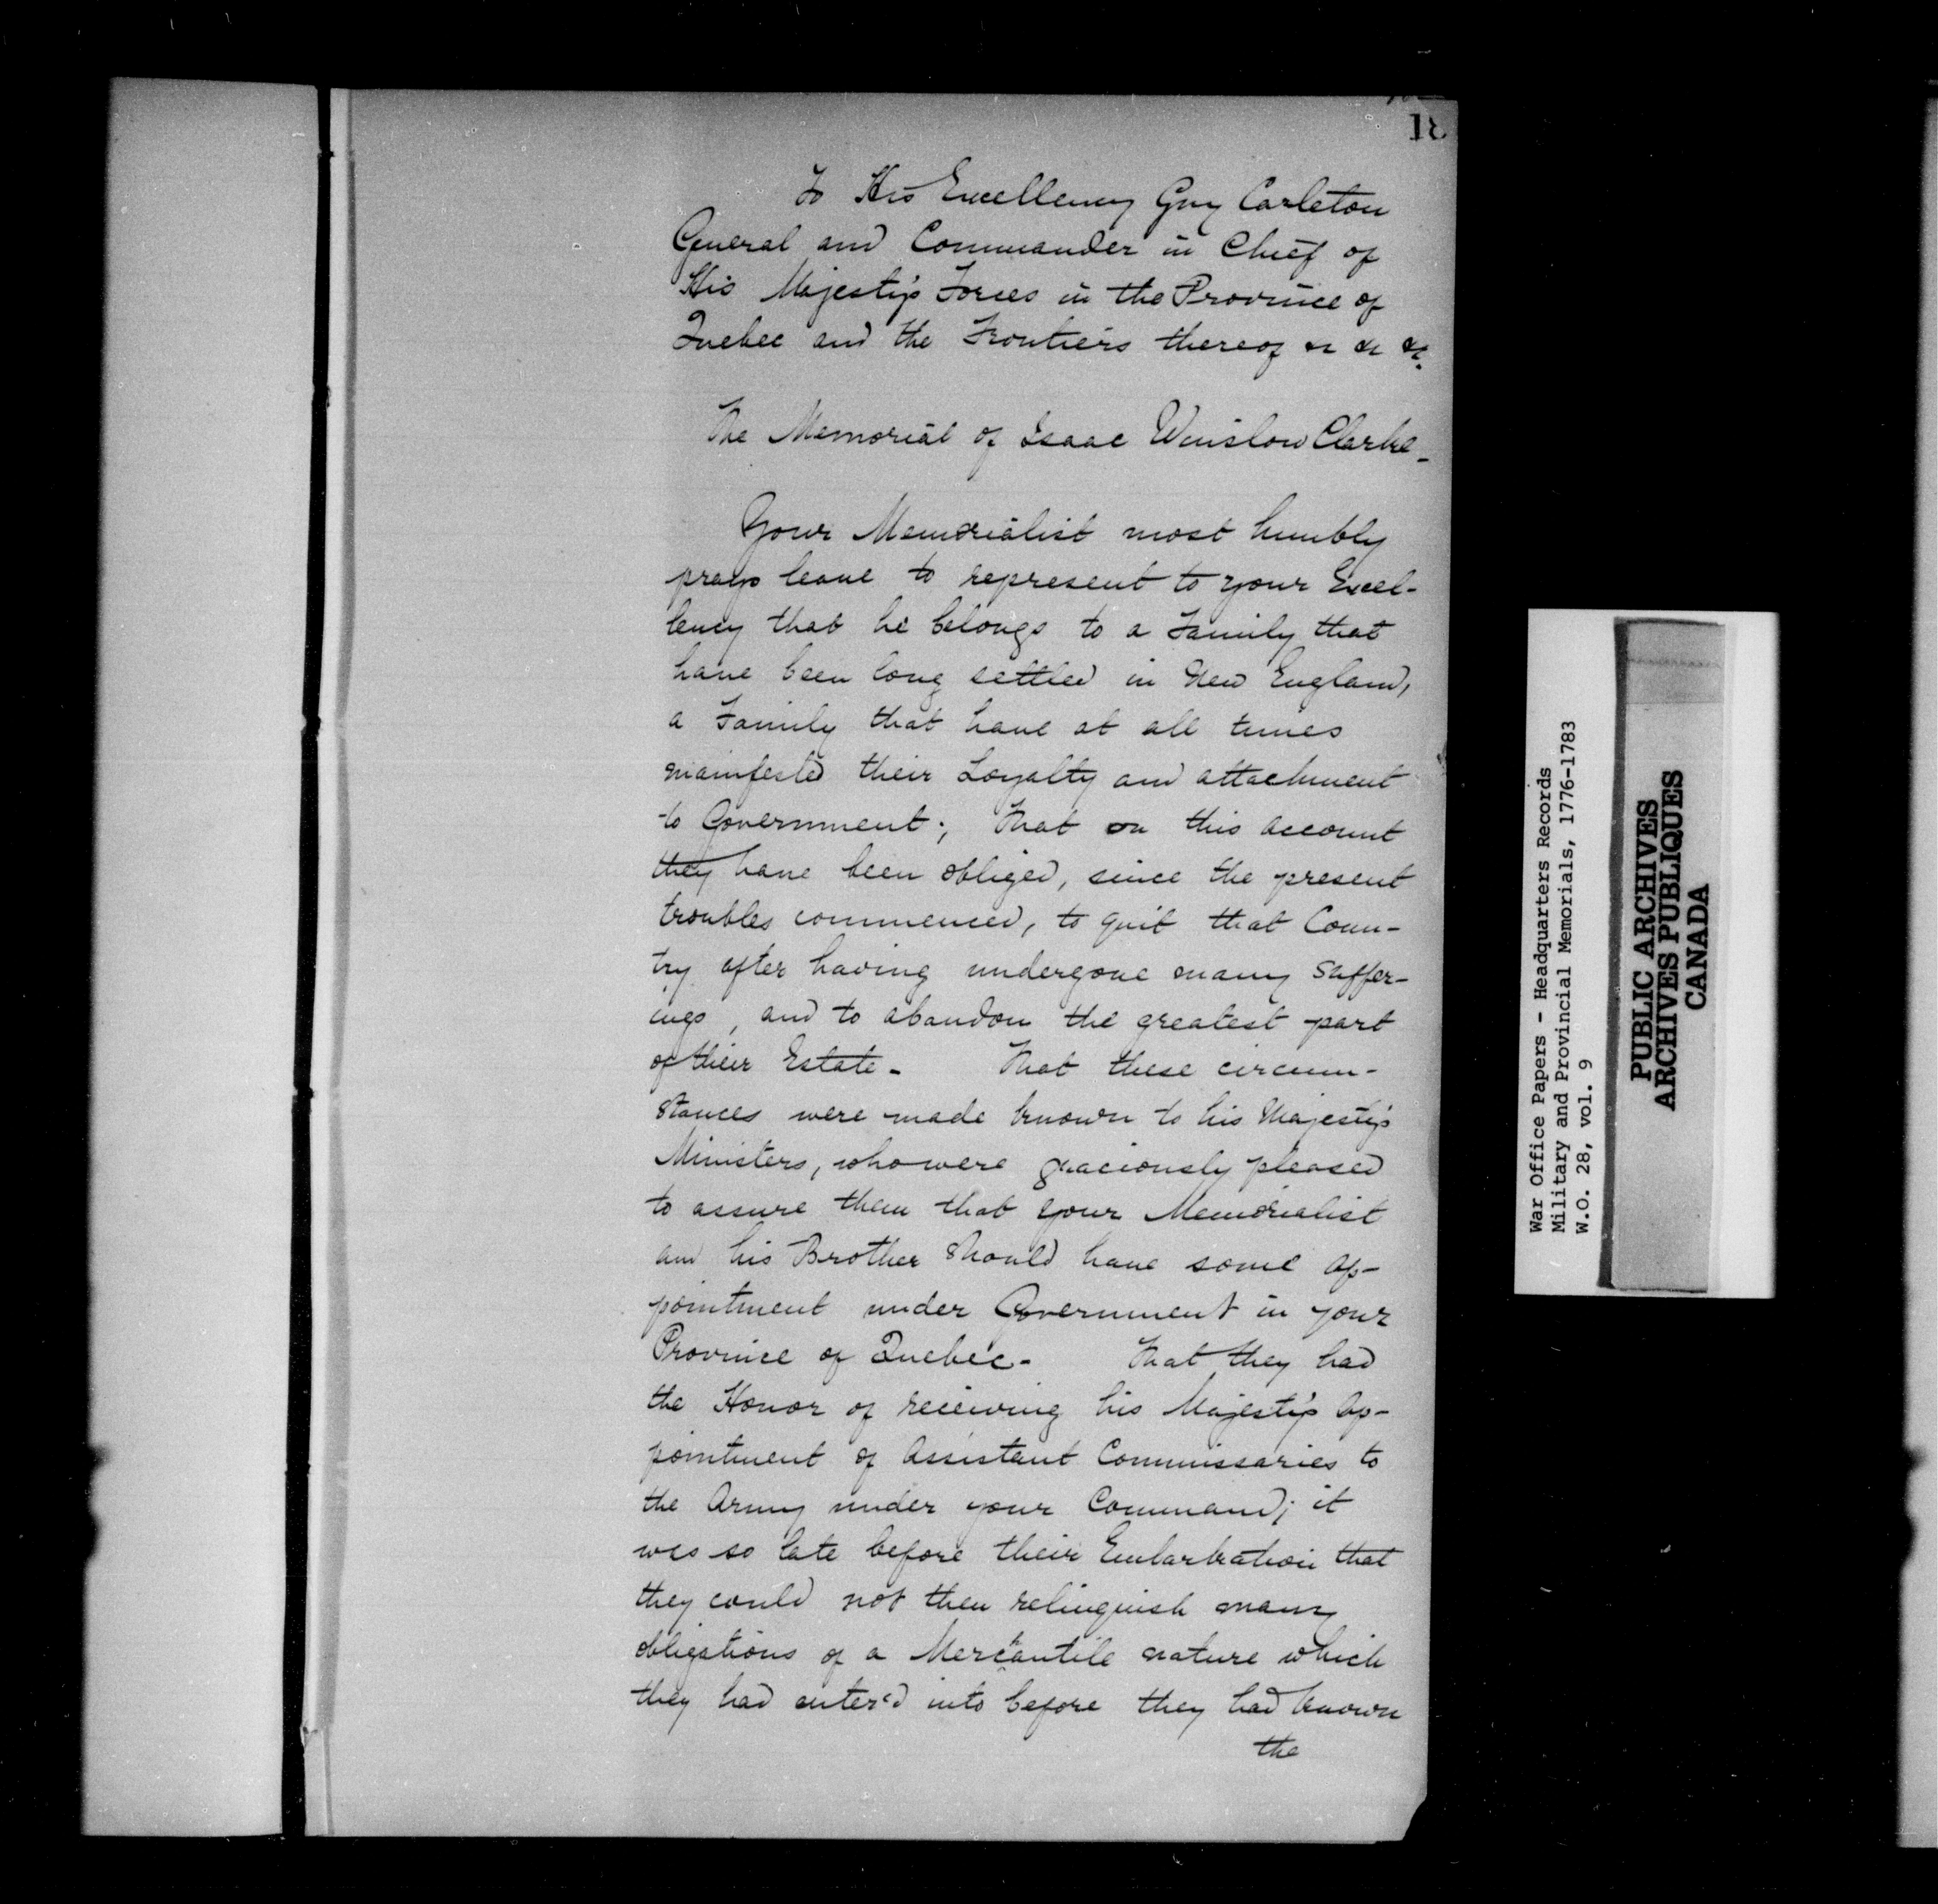 18
To His Excellency Guy Carleton
General and Commander in Chief of
His Majesty's Forces in the Province of
Quebec and the Frontiers thereof &c &c &c.
The Memorial of Isaac Winslow Clarke -
Your Memorialist most humbly
prays leave to represent to your Excel-
lency that he belongs to a Family that
have been long settled in New England,
a Family that have at all times
manifested their Loyalty and attachment
to Government; That on this account
they have been obliged, since the present
troubles commenced, to quit that Coun-
try after having undergone many Suffer-
ings, and to abandon the greatest part
of their Estate - That these circum-
stances were made known to his Majesty's
Ministers, who were graciously pleased
to assure them that your Memorialist
and his Brother should have some Ap-
pointment under Government in your
Province of Quebec - That they had
the Honor of receiving his Majesty's Ap-
pointment of Assistant Commissaries to
the Army under your Command; it
was so late before their Embarkation that
they could not then relinquish many
obligations of a Merchantile nature which
they had enter'd into before they had known
the
War Office Papers - Headquarters Records
Military and Provincial Memorials, 1776-1783
W.O. 28, vol. 9
PUBLIC ARCHIVES
ARCHIVES PUBLIQUES
CANADA